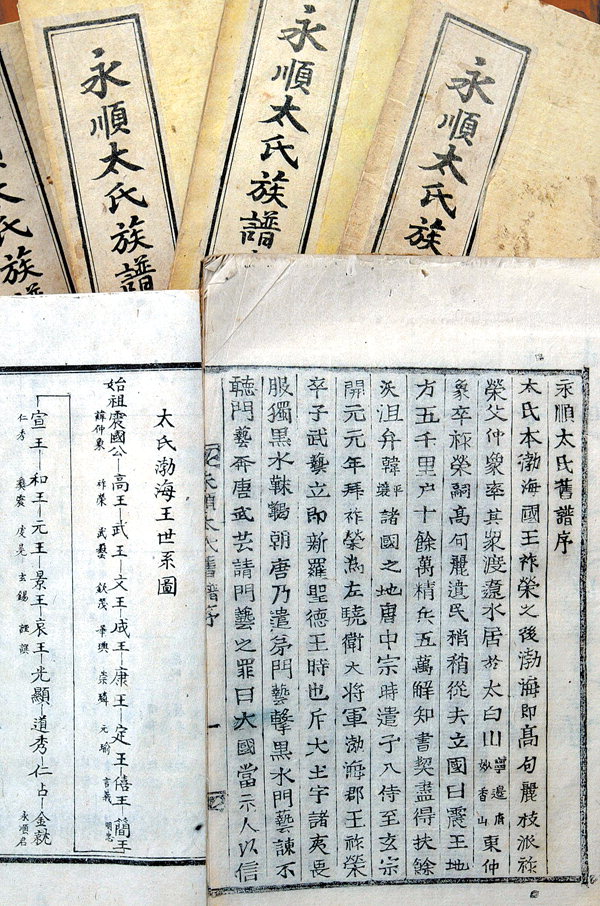 永順太氏族譜
永順太氏族譜
永順太氏族
太氏族譜
永順太氏舊譜序
太氏本渤海國王祚榮之後渤海即高句麗枝派祚
榮父仲象率其衆渡遼水居於太白山寧邊府妙香山東仲
象卒祚榮嗣高句麗遺民稍稍從去立國曰震王地
方五千里戶十餘萬精兵五萬解知書契盡得扶餘
沃沮弁韓平壤諸國之地唐中宗時遣子入侍至玄宗
開元元年拜祚榮爲左驍衛大將軍渤海郡王祚榮
卒子武藝立即新羅聖德王時也斥大土宇諸夷畏
服獨黑水靺鞨朝唐乃遣弟門藝擊黑水門藝諫不
聽門藝奔唐武芸請門藝之罪曰大國當示人以信
太氏渤海王世系圖
始祖震國公 高王 武王 文王 成王 康王 定王 僖王 簡王
諱仲象 祚榮 武藝 欽茂 華璵 崇璘 元瑜 言義 明忠
宣王 和王 元王 景王 哀王 光顯 道秀 仁占 金就
仁秀 彝震 虔晃 玄錫 諲譔 永順君